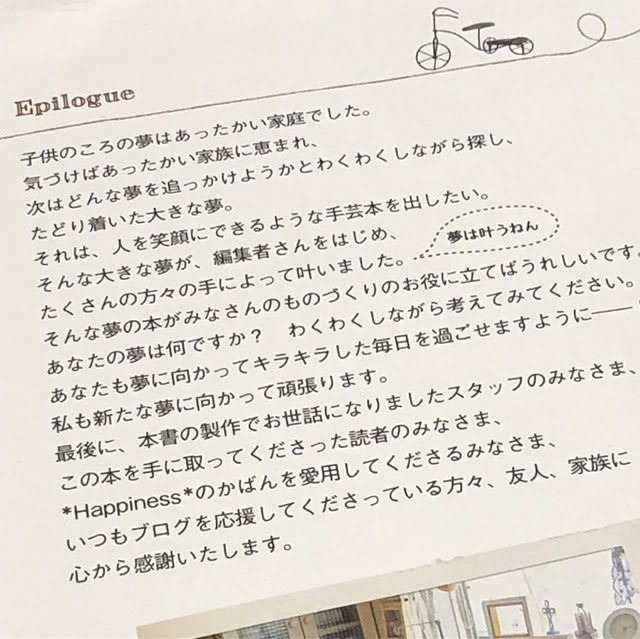 Epilogue
子供のころの夢はあったかい家庭でした。
気づけばあったかい家族に恵まれ、
次はどんな夢を追っかけようかとわくわくしながら探し、
たどり着いた大きな夢。
それは、人を笑顔にできるような手芸本を出したい。
そんな大きな夢が、編集者さんをはじめ、
たくさんの方々の手によって叶いました。
夢は叶うねん
そんな夢の本がみなさんのものづくりのお役に立てばうれしいです。
あなたの夢は何ですか？　わくわくしながら考えてみてください。
あなたも夢に向かってキラキラした毎日を過ごせますように――
私も新たな夢に向かって頑張ります。
最後に、本書の製作でお世話になりましたスタッフのみなさま、
この本を手に取ってくださった読者のみなさま、
*Happiness*のかばんを愛用してくださるみなさま、
いつもブログを応援してくださっている方々、友人、家族に
心から感謝いたします。